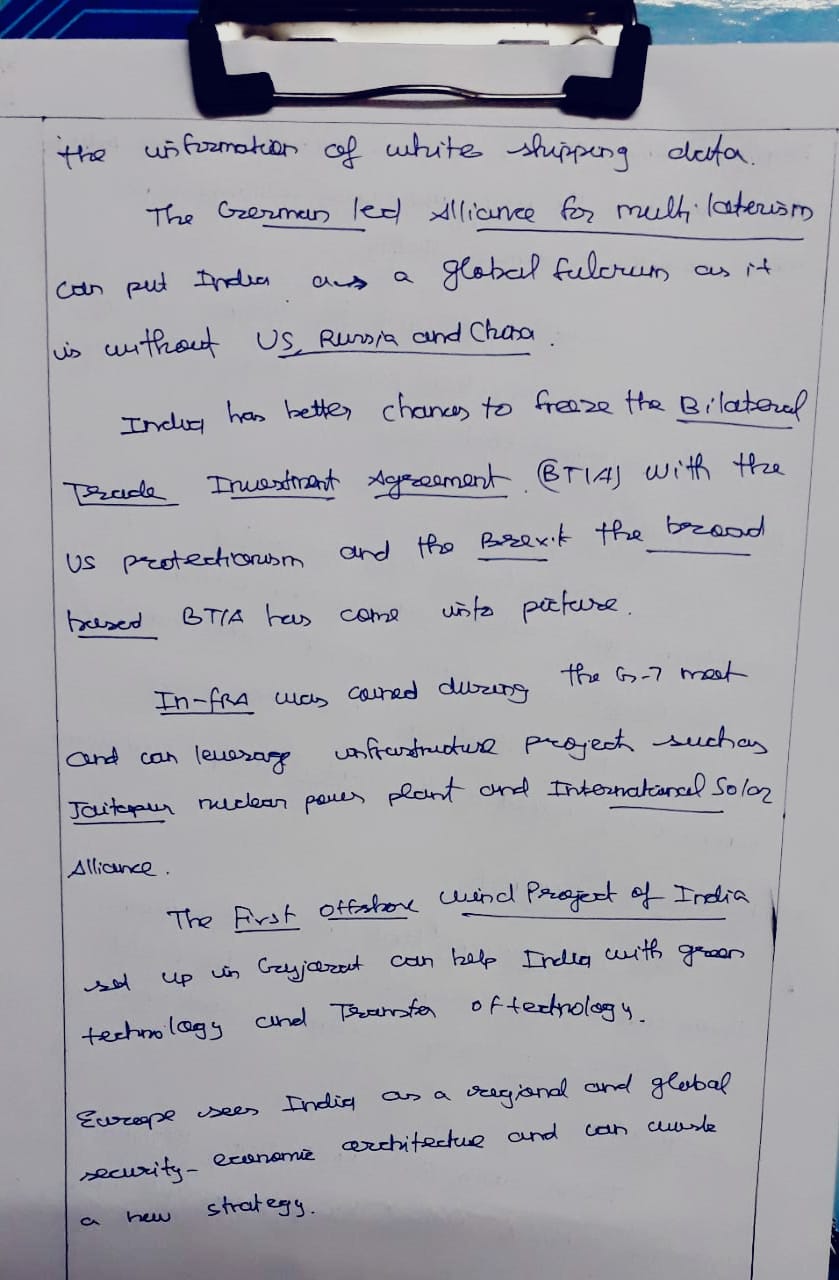 the information of white shipping data.
The German led Alliance for multilaterism
can put India as a global fulcrum as it
is without US, Russia and China.
India has better chances to freeze the Bilateral
Trade Investment Agreement (BTIA) with the
US protectionism and the Brexit the broad
based BTIA has come into picture.
In-fRA was coined during the G-7 meet
and can leverage infrastructure project such as
Jaitapur nuclear power plant and International Solar
Alliance.
The First offshore wind Project of India
set up in Gujarat can help India with green
technology and Transfer of technology.
Europe sees India as a regional and global
security-economic architecture and can
a new strategy.